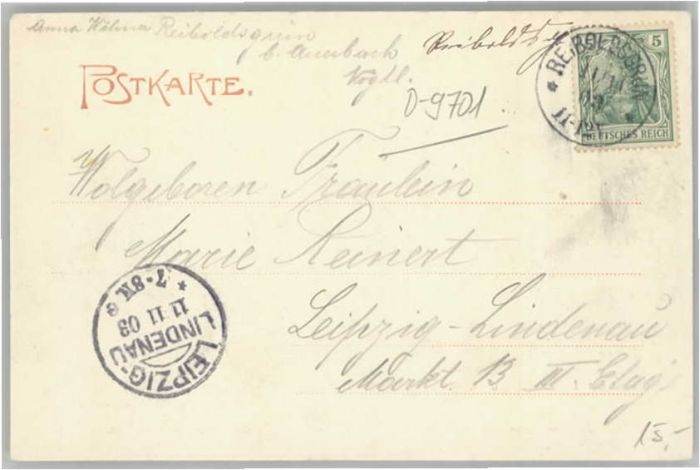 Anna Reiboldsgrün
b. Auerbach
Vogtl.
Reiboldsgr
POSTKARTE.
D-9701
5
REIBOLDSGRÜN
DEUTSCHES REICH
Wolgeboren Fräulein
Marie Reinert
Leipzig-Lindenau
Markt 13 III. Etage
LEIPZIG-
LINDENAU
11 11 03
* 7-8N. e
15,-